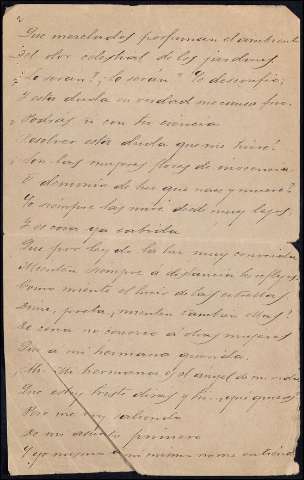 Que mezclados perfuman el ambiente
Del olor celestial de los jardines
¿Lo serán? ¿Lo serán? Yo desconfio;
Y esta duda en verdad me causa frio.
Podras tu con tu ciencia
Resolver esta duda que me hiere?
Son las mujeres flores de inocencia
O demonio de luz que nace y muere?
Yo siempre las miré desde muy lejos
Y es cosa ya sabida
Que por ley de la luz muy conocida
Mienten siempre a distancia los reflejos
Como miente el brillo de las estrellas
Dime, poeta, mienten tambien ellas?
De cerca no conozco a otras mujeres
Que a mi hermana querida.
Mi hermana es el angel de mi vida
Que estoy triste diras y tu que quieres?
Pero me voy saliendo
De mi asunto primero
Y yo mismo a mi mismo no me entiendo